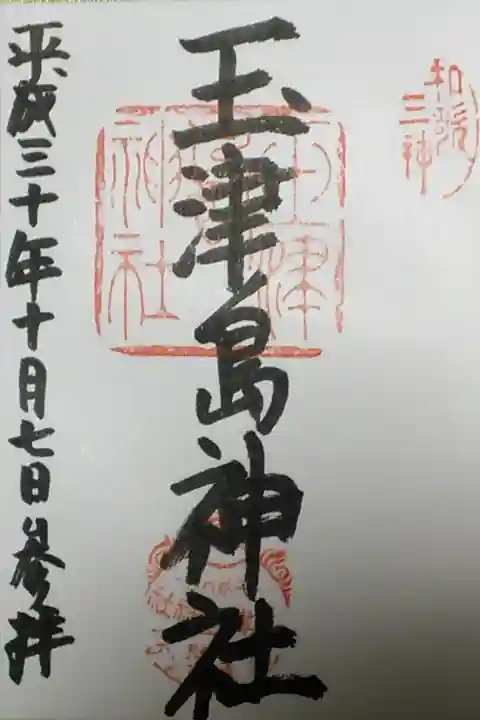 和歌
三神
玉津島神社
平成三十年十月七日参拝